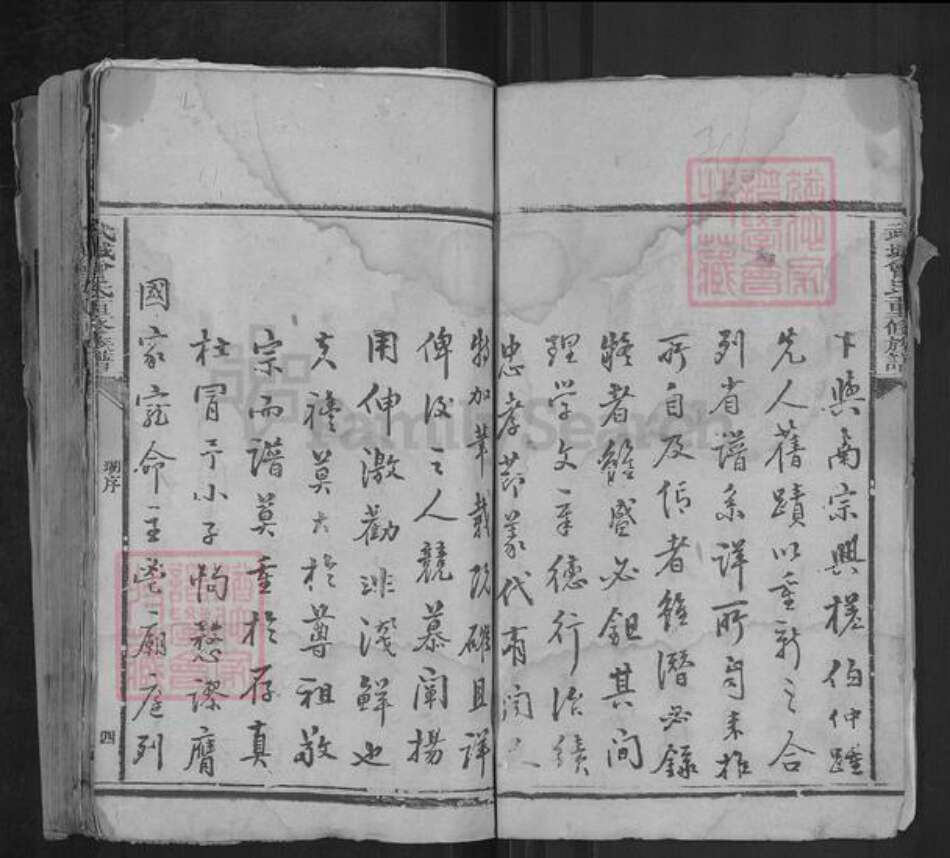 武城曾氏重修族譜
下與南宗興楚伯仲踵
先人舊蹟以重新之合
列省譜系詳所自来推
所自及信者雖潛必錄
疑者雖盛必鉏其間
理学文章德行治績
忠孝節義代有聞人
特加筆載改確且詳
俾後之人競慕闡揚
用伸激勸非淺鮮也
夫禮莫大於尊祖敬
宗而譜莫重於存真
杜冒予小子恫愁謬膺
國家寵命主鬯廟庭列
武城曾氏重修族譜
序
四
FamilySearch